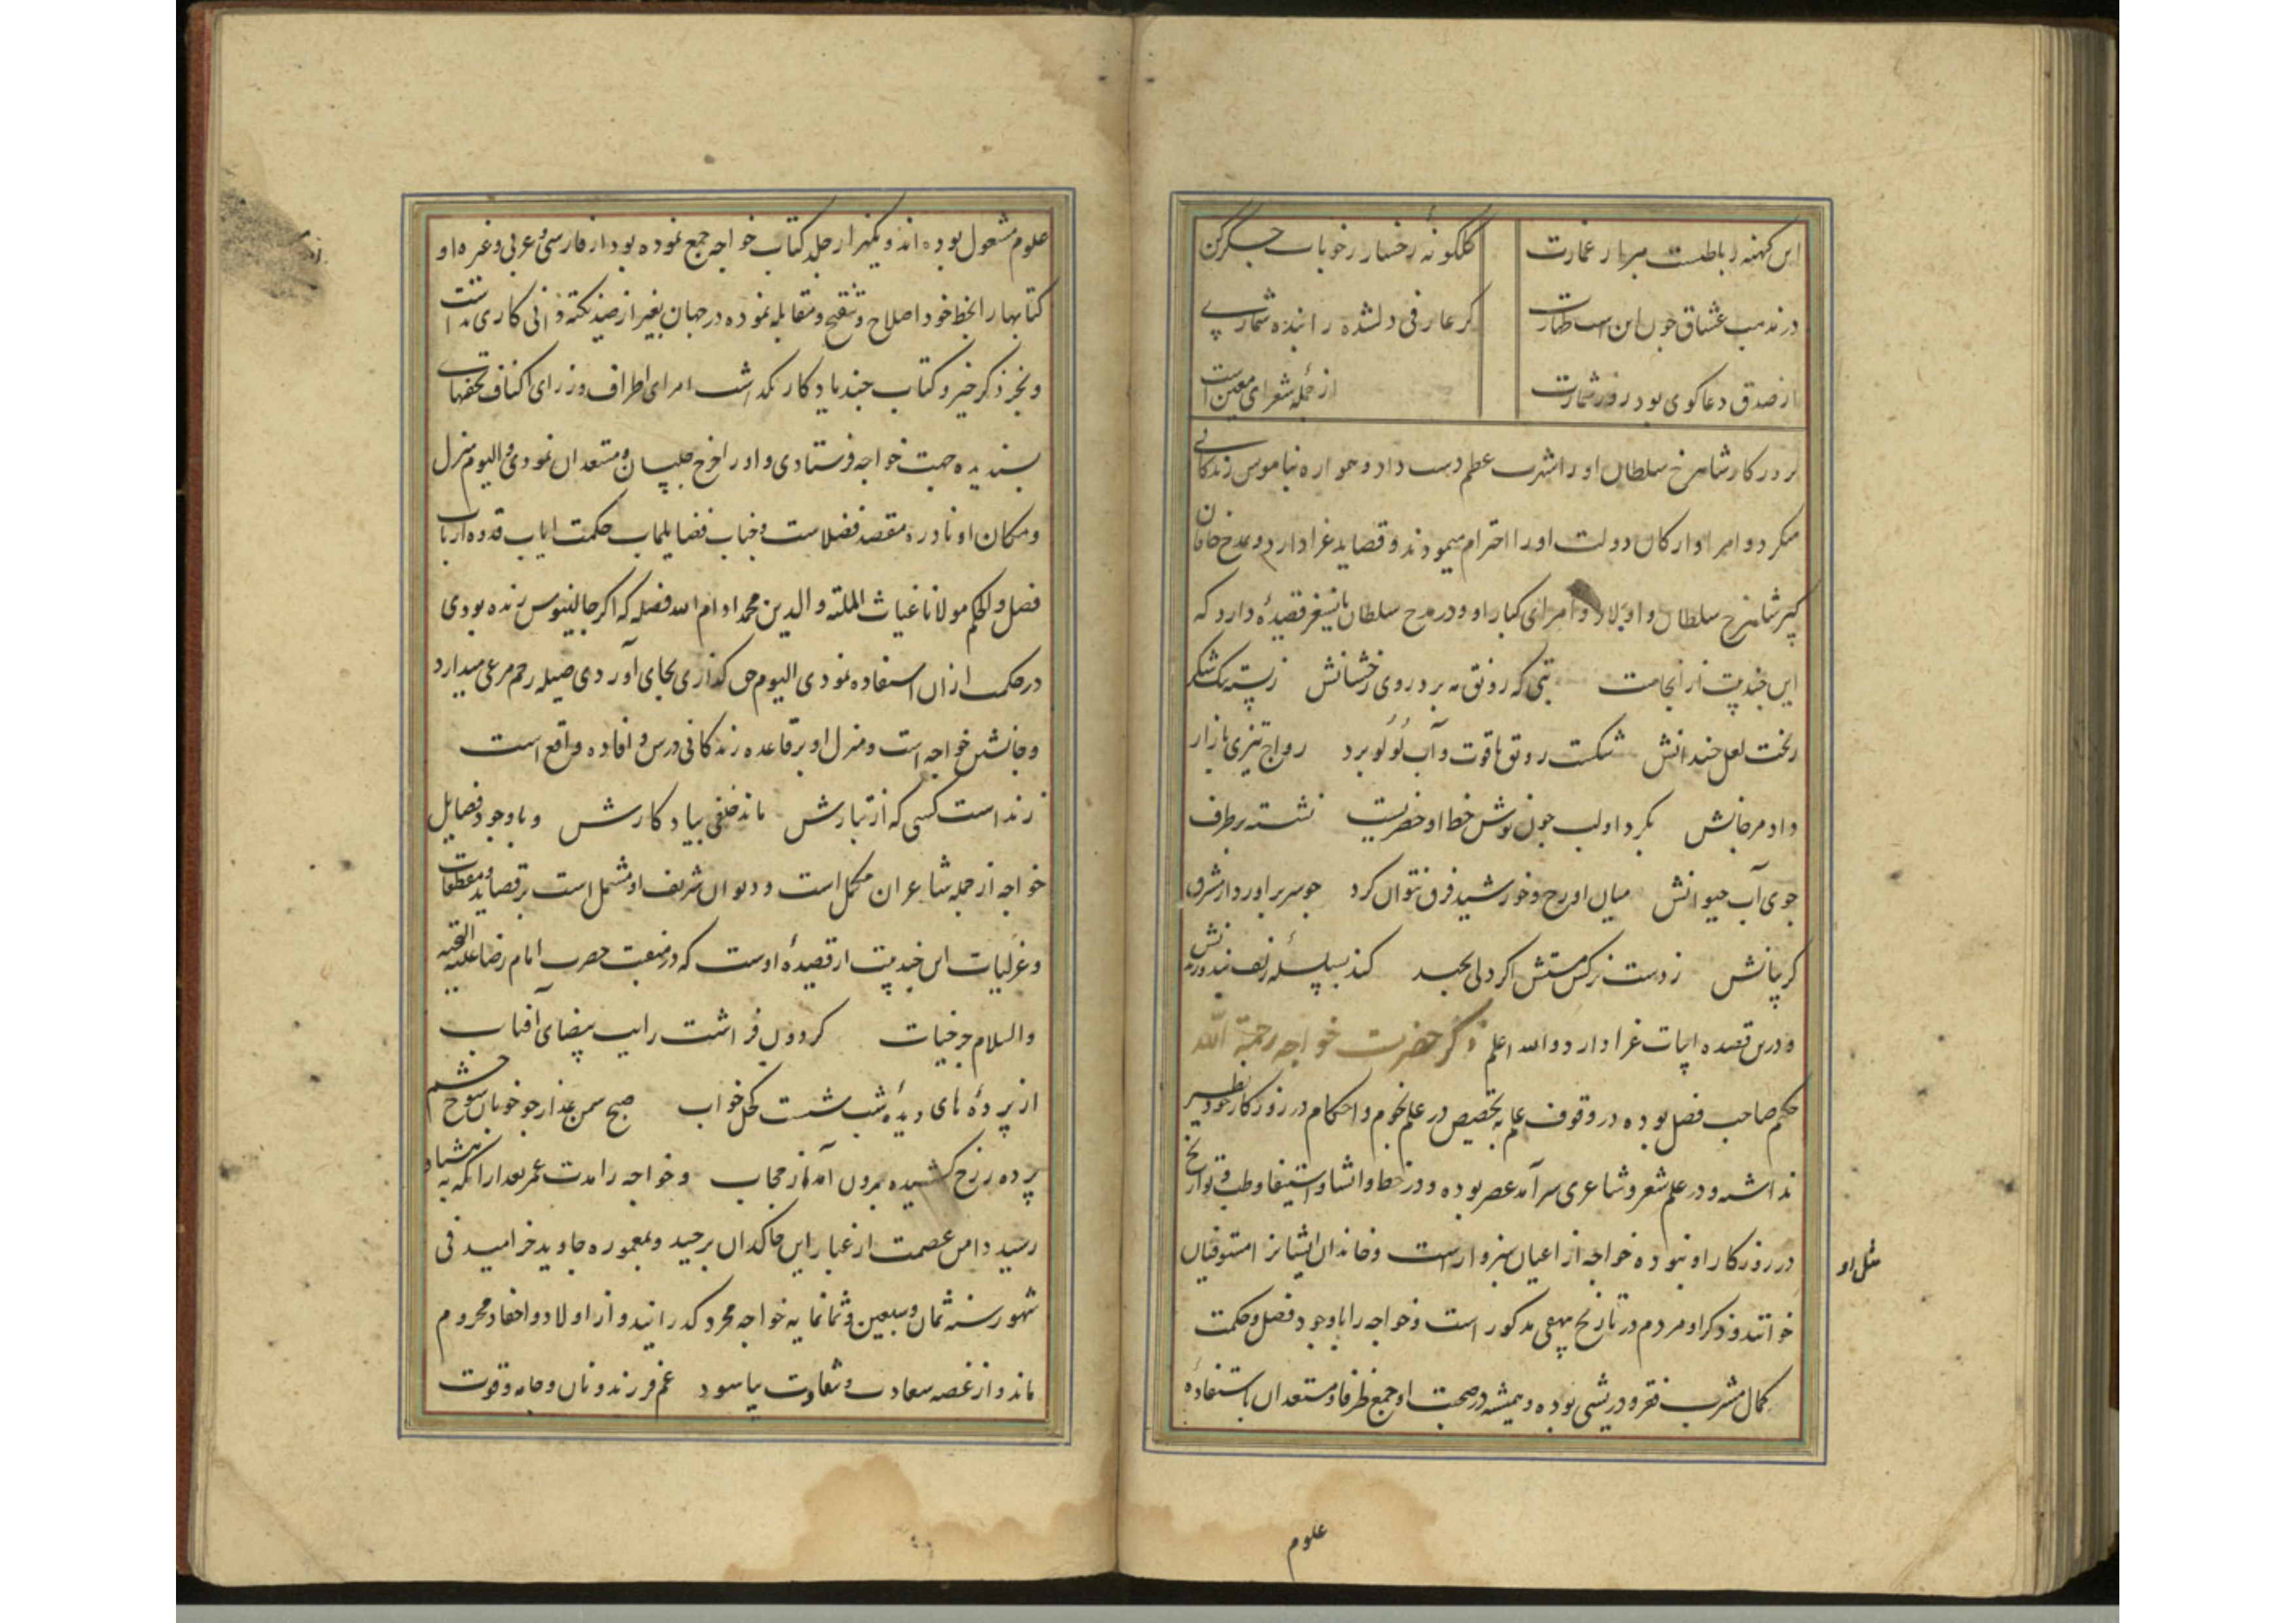 این کهنه رباطیست مبر بار عمارت
کلکونهٔ رخسار ز خوناب جگر کن
در مذهب عشاق چون این است طهارت
کر عارفی دلشده را بنده شماری
از صدق دعا کوی بود روز شمارت
از جملهٔ شعرای معین است
بروزکار شاهرخ سلطان او را شهرت عظیم دست داد و همواره بناموس زندکانی
میکرد و امرا و ارکان دولت او را احترام مینمودند و قصاید غرا دارد در مدح خاقان
کبیر شاهرخ سلطان و اولاد و امرای کبار او و در مدح سلطان بایسنغر قصیدهٔ دارد که
این چند بیت از انجاست بتی که رونق مه برد روی رخشانش ز پسته تنک شکر
ریخت لعل خندانش شکست رونق یاقوت و آب لؤلؤ برد رواج تیزی بازار
داد مرجانش بکرد او لب چون نوش خط او خضریست نشسته بر طرف
جوی آب حیوانش میان او رخ و خورشید فرق نتوان کرد چو سر براورد از شرق
کریبانش ز دست نرکس مستش اکر دلی بجهد کند بسلسلهٔ زلف بند و زندانش
و درین قصیده ابیات غرا دارد و الله اعلم ذکر حضرت خواجه رحمة الله
حکیم صاحب فضل بوده در وقوف علم بتخصیص در علم نجوم و احکام در روزکار خود نظیر
نداشته و در علم شعر و شاعری سرآمد عصر بوده و در خط و انشا و استیفا و طب و تواریخ
مثل او
در روزکار او نبوده خواجه از اعیان سبزوار است و خاندان ایشانرا مستوفیان
خوانند و ذکر او مردم در تاریخ بیهقی مذکور است و خواجه را با وجود فضل و حکمت
کمال مشرب فقر و درویشی بوده و همیشه در صحبت او جمع ظرفا و مستعدان باستفادهٔ
علوم
علوم مشغول بوده اند و یکهزار جلد کتاب خواجه جمع نموده بود از فارسی و عربی و غیره و او
کتابها را بخط خود اصلاح و تنقیح و مقابله نموده در جهان بغیر از صید نکته دانی کاری نداشت
و بجز ذکر خیر و کتاب چند یادکار نکذاشت امرای اطراف و وزرای اکناف تحفهای
پسندیده جهت خواجه فرستادی و او را خرج جلیسان و مستعدان نمودی و الیوم منزل
و مکان او نادره مقصد فضلاست و جناب فضایلماب حکمت ایاب قدوه ارباب
فضل و الحکم مولانا غیاث الملة و الدین محمد ادام الله فضله که اکر جالینوس زنده بودی
در حکمت از ان استفاده نمودی الیوم حق کذاری بجای آوردی صله رحم مرعی میدارد
و جانشین خواجه است و منزل او بر قاعده زندکانی درس و افاده واقع است
زنداست کسی که از تبارش ماند خلفی بیادکارش و با وجود فضایل
خواجه از جمله شاعران مکمل است و دیوان شریف او مشتمل است بر قصاید و مقطعات
و غزلیات این چند بیت از قصیدهٔ اوست که در منقبت حضرت امام رضا علیه التحیه
والسلام کردون فراشت رایت بیضای آفتاب
از پردهٔ های دیدهٔ شب شست کحل خواب صبح سمن عذار چو خوبان شوخ چشم
پرده ز رخ کشیده برون آمد از حجاب و خواجه را مدت عمر بعد از انکه به هشتاد
رسید دامن عصمت از غبار این خاکدان برچید و بمعموره جاوید خرامید فی
شهور سنه ثمان و سبعین و ثمانمایه خواجه مجرد کذرانید و از اولاد و احفاد محروم
ماند و از غصه سعادت و شقاوت بیاسود غم فرزند و نان و جامه و قوت